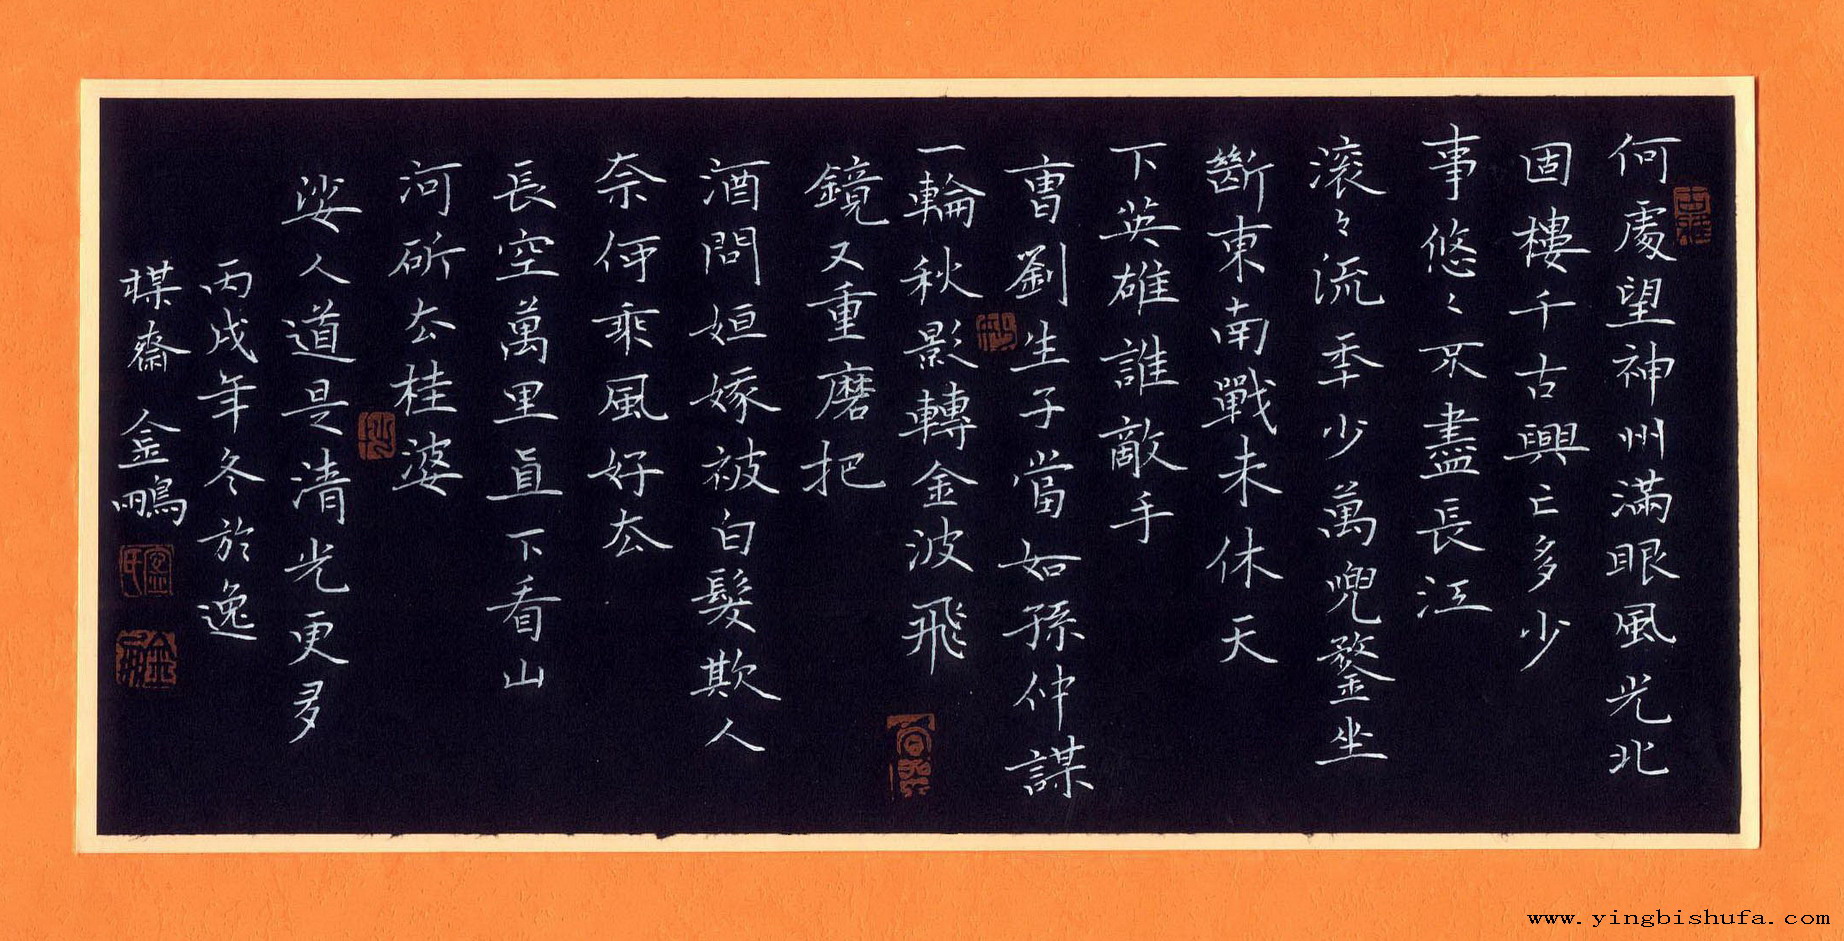 何處望神州滿眼風光北
固樓千古興亡多少
事悠々不盡長江
滚々流年少萬兜鍪坐
斷東南戰未休天
下英雄誰敵手
曹劉生子當如孫仲謀
一輪秋影轉金波飛
鏡又重磨把
酒問姮嫁被白髮欺人
奈何乘風好去
長空萬里直下看山
河斫去桂婆
娑人道是清光更多
丙戌年冬於逸
楳齋金鵬
www.yingbishufa.com